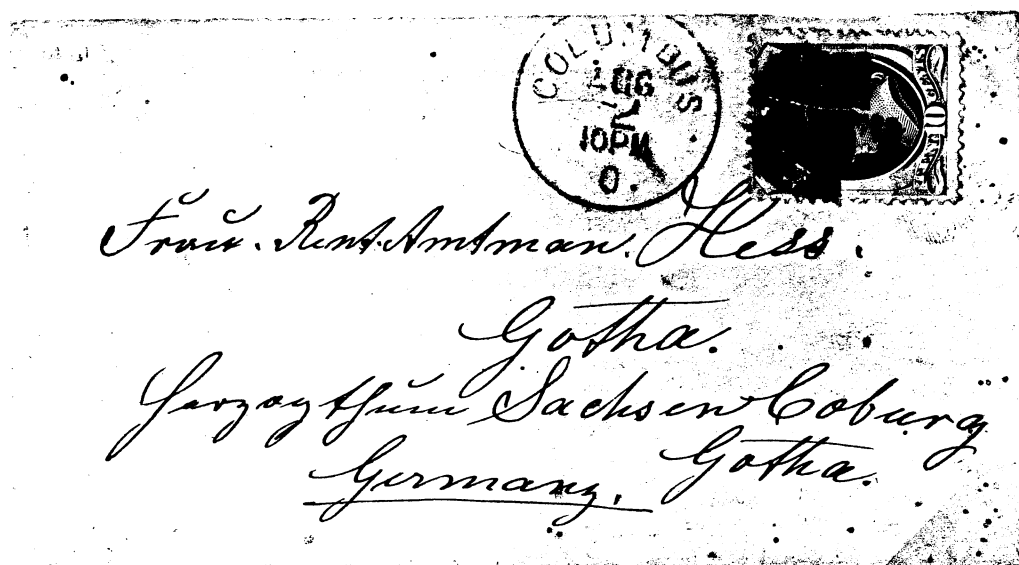 COLUMBUS.
AUG
10PM
O.
Frau. RentAmtman. Hess.
Gotha.
Herzogthum Sachsen Coburg
Gotha.
Germany.